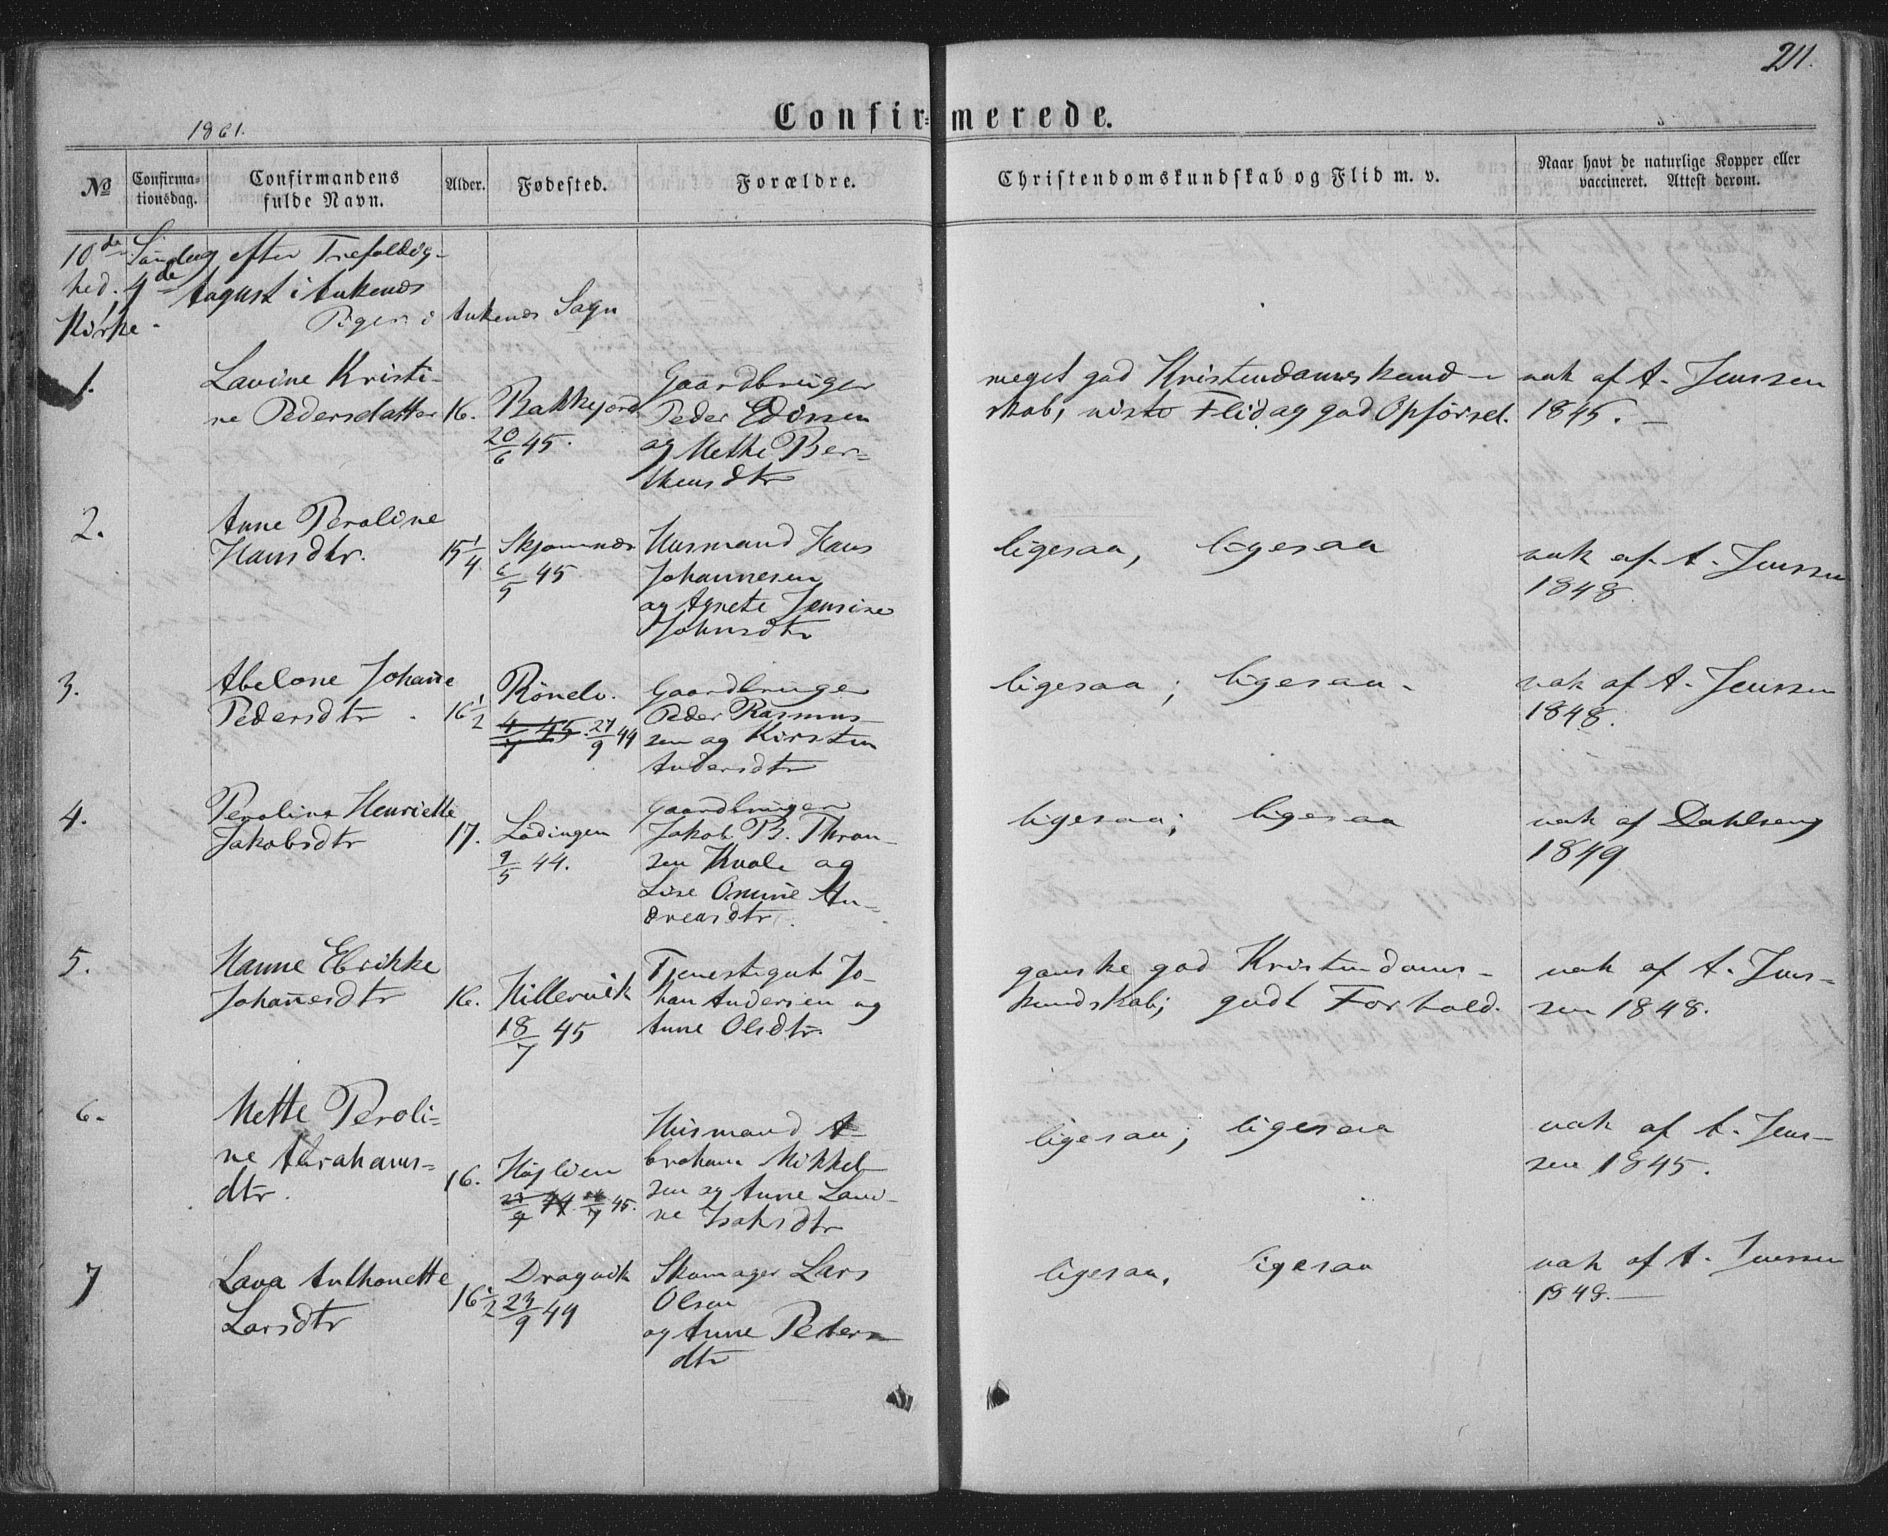 211.
Confirmerede.
1861.
No
Confirma-
tionsdag.
Confirmandens
fulde Navn.
Alder.
Fødested.
Forældre.
Christendomskundskab og Flid m. v.
Naar havt de naturlige Kopper eller
vaccineret. Attest derom.
10de Søndag efter Trefoldig-
hed. 4de August i Ankenes
Kirke. Piger i Ankenes Sogn
1.
Lavine Kristi-
ne Pedersdatter
16.
Bakkejord
20/6 45.
Gaardbruger
Peder Edissen
og Methe Ber-
thensdtr
meget god Kristendomskund-
skab, vist Flid og god Opførsel.
vak af A. Jenssen
1845.
2.
Anne Peroline
Hansdtr.
15 1/4
Skjomnæs
6/5 45
Husmand Hans
Johannesen
og Agnete Jensine
Johnsdtr
ligesaa, ligesaa
vak af A. Jenssen
1848.
3.
Abelone Johanne
Pedersdtr.
16 1/2
Rönelv.
4/7 45. 27/9 44
Gaardbruger
Peder Rasmus-
sen og Kirsten
Andersdtr
ligesaa; ligesaa.
vak af A. Jenssen
1848.
4.
Peroline Henriette
Jakobsdtr
17.
Lödingen
9/5 44.
Gaardbruger
Jakob B. Thran-
sen Kvale og
Lise Omine An-
dreasdtr.
ligesaa; ligesaa
vak af Dahlseng
1849
5.
Hanne Ebrikke
Johannesdtr
16.
Hillervik
18/7 45
Tjenestegut Jo-
han Andersen og
Anne Olsdtr.
ganske god Kristendoms-
kundskab; godt Forhold.
vak af A. Jens-
sen 1848.
6.
Mette Peroli-
ne Abrahams-
dtr.
16.
Højlien
23/9 44. 26/7 45.
Husmand A-
braham Mikkel-
sen og Anne Lavi-
ne Isaksdtr
ligesaa; ligesaa
vak af A. Jens-
sen 1845.
7
Lava Anthonette
Larsdtr
16 1/2
Dragvik
23/9 44
Skomager Lars
Olsen
og Anne Peters-
dtr
ligesaa, ligesaa
vak af A. Jenssen
1848.